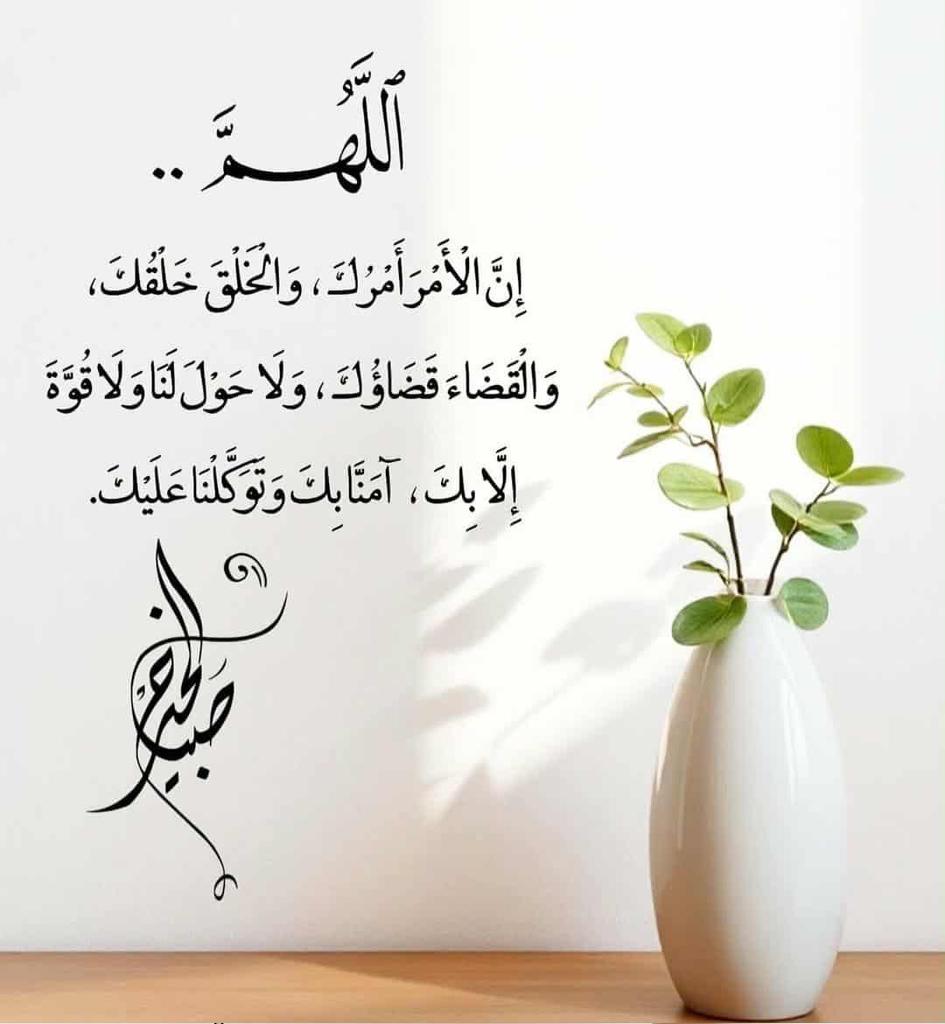 اَللَّهُمَّ ..
إِنَّ الْأَمْرَ أَمْرُكَ، وَالْخَلْقَ خَلْقُكَ،
وَالْقَضَاءَ قَضَاؤُكَ، وَلَا حَوْلَ لَنَا وَلَا قُوَّةَ
إِلَّا بِكَ، آمَنَّا بِكَ وَتَوَكَّلْنَا عَلَيْكَ.
صباح الخير